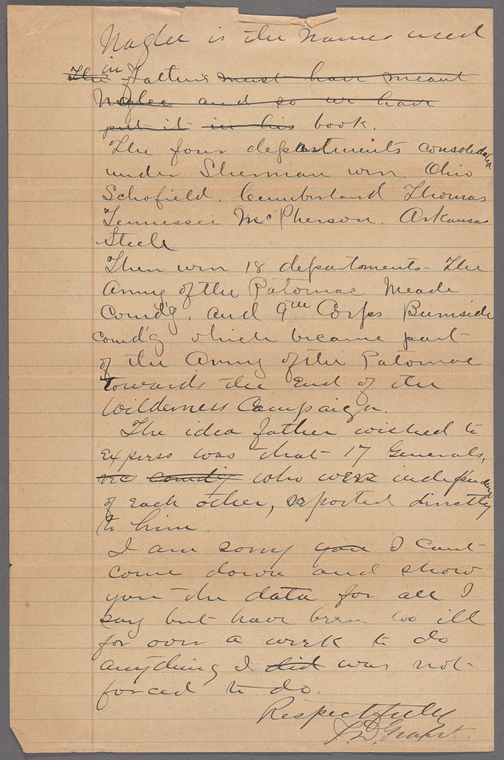 Naglee is the names used
in
The Father's must have meant
Naglee and so we have
put it in his book.
The four departments consolidated
under Sherman were. Ohio
Schofield. Cumberland Thomas
Tennessee McPherson. Arkansas
Steele
There were 18 departments - The
Army of the Potomac Meade
Comd'g. and 9th Corps Burnside
Comd'g which became part
of the Army of the Potomac
towards the end of the
Wilderness Campaign.
The idea father wished to
express was that 17 Generals,
comdg who were independent
of each other, reported directly
to him.
I am sorry you I cant
come down and show
you the data for all I
say but have been too ill
for over a week to do
anything I did was not
forced to do.
Respectfully
F.D. Grant.